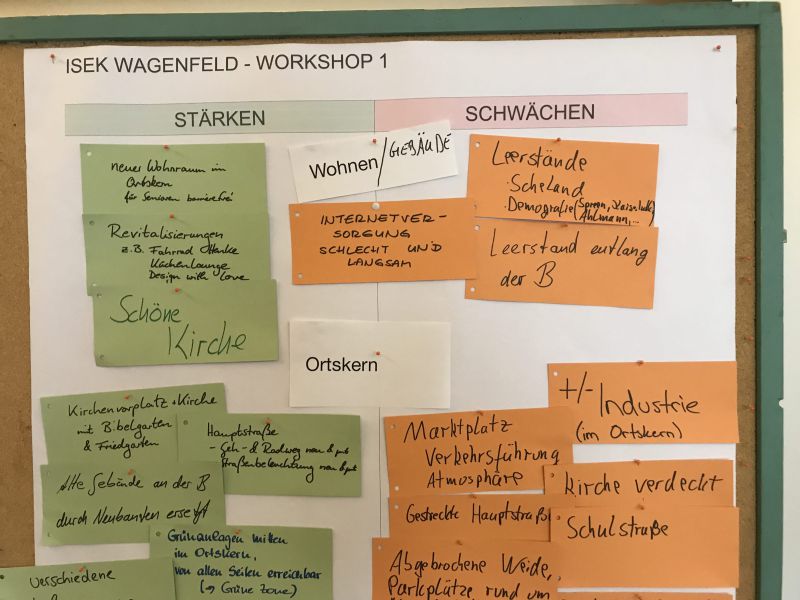 ISEK WAGENFELD - WORKSHOP 1
STÄRKEN
SCHWÄCHEN
Wohnen/GEBÄUDE
neuer Wohnraum im
Ortskern
für Senioren barrierefrei
Revitalisierungen
z.B. Fahrrad
Küchenlounge
Design with love
Schöne
Kirche
INTERNETVER-
SORGUNG
SCHLECHT UND
LANGSAM
Leerstände
· Scheland
· Demografie (
Ahlmann, ...
Leerstand entlang
der B
Ortskern
Kirchenvorplatz + Kirche
mit Bibelgarten
& Friedgarten
Hauptstraße
- Geh- & Radweg neu & gut
Straßenbeleuchtung neu & gut
Alte Gebäude an der B
durch Neubauten ersetzt
Grünanlagen mitten
im Ortskern,
von allen Seiten erreichbar
(→ Grüne Zone)
verschiedene
+/- Industrie
(im Ortskern)
Marktplatz
Verkehrsführung
Atmosphäre
Kirche verdeckt
Gestreckte Hauptstraße
Schulstraße
Abgebrochene Weide,
Parkplätze rund um